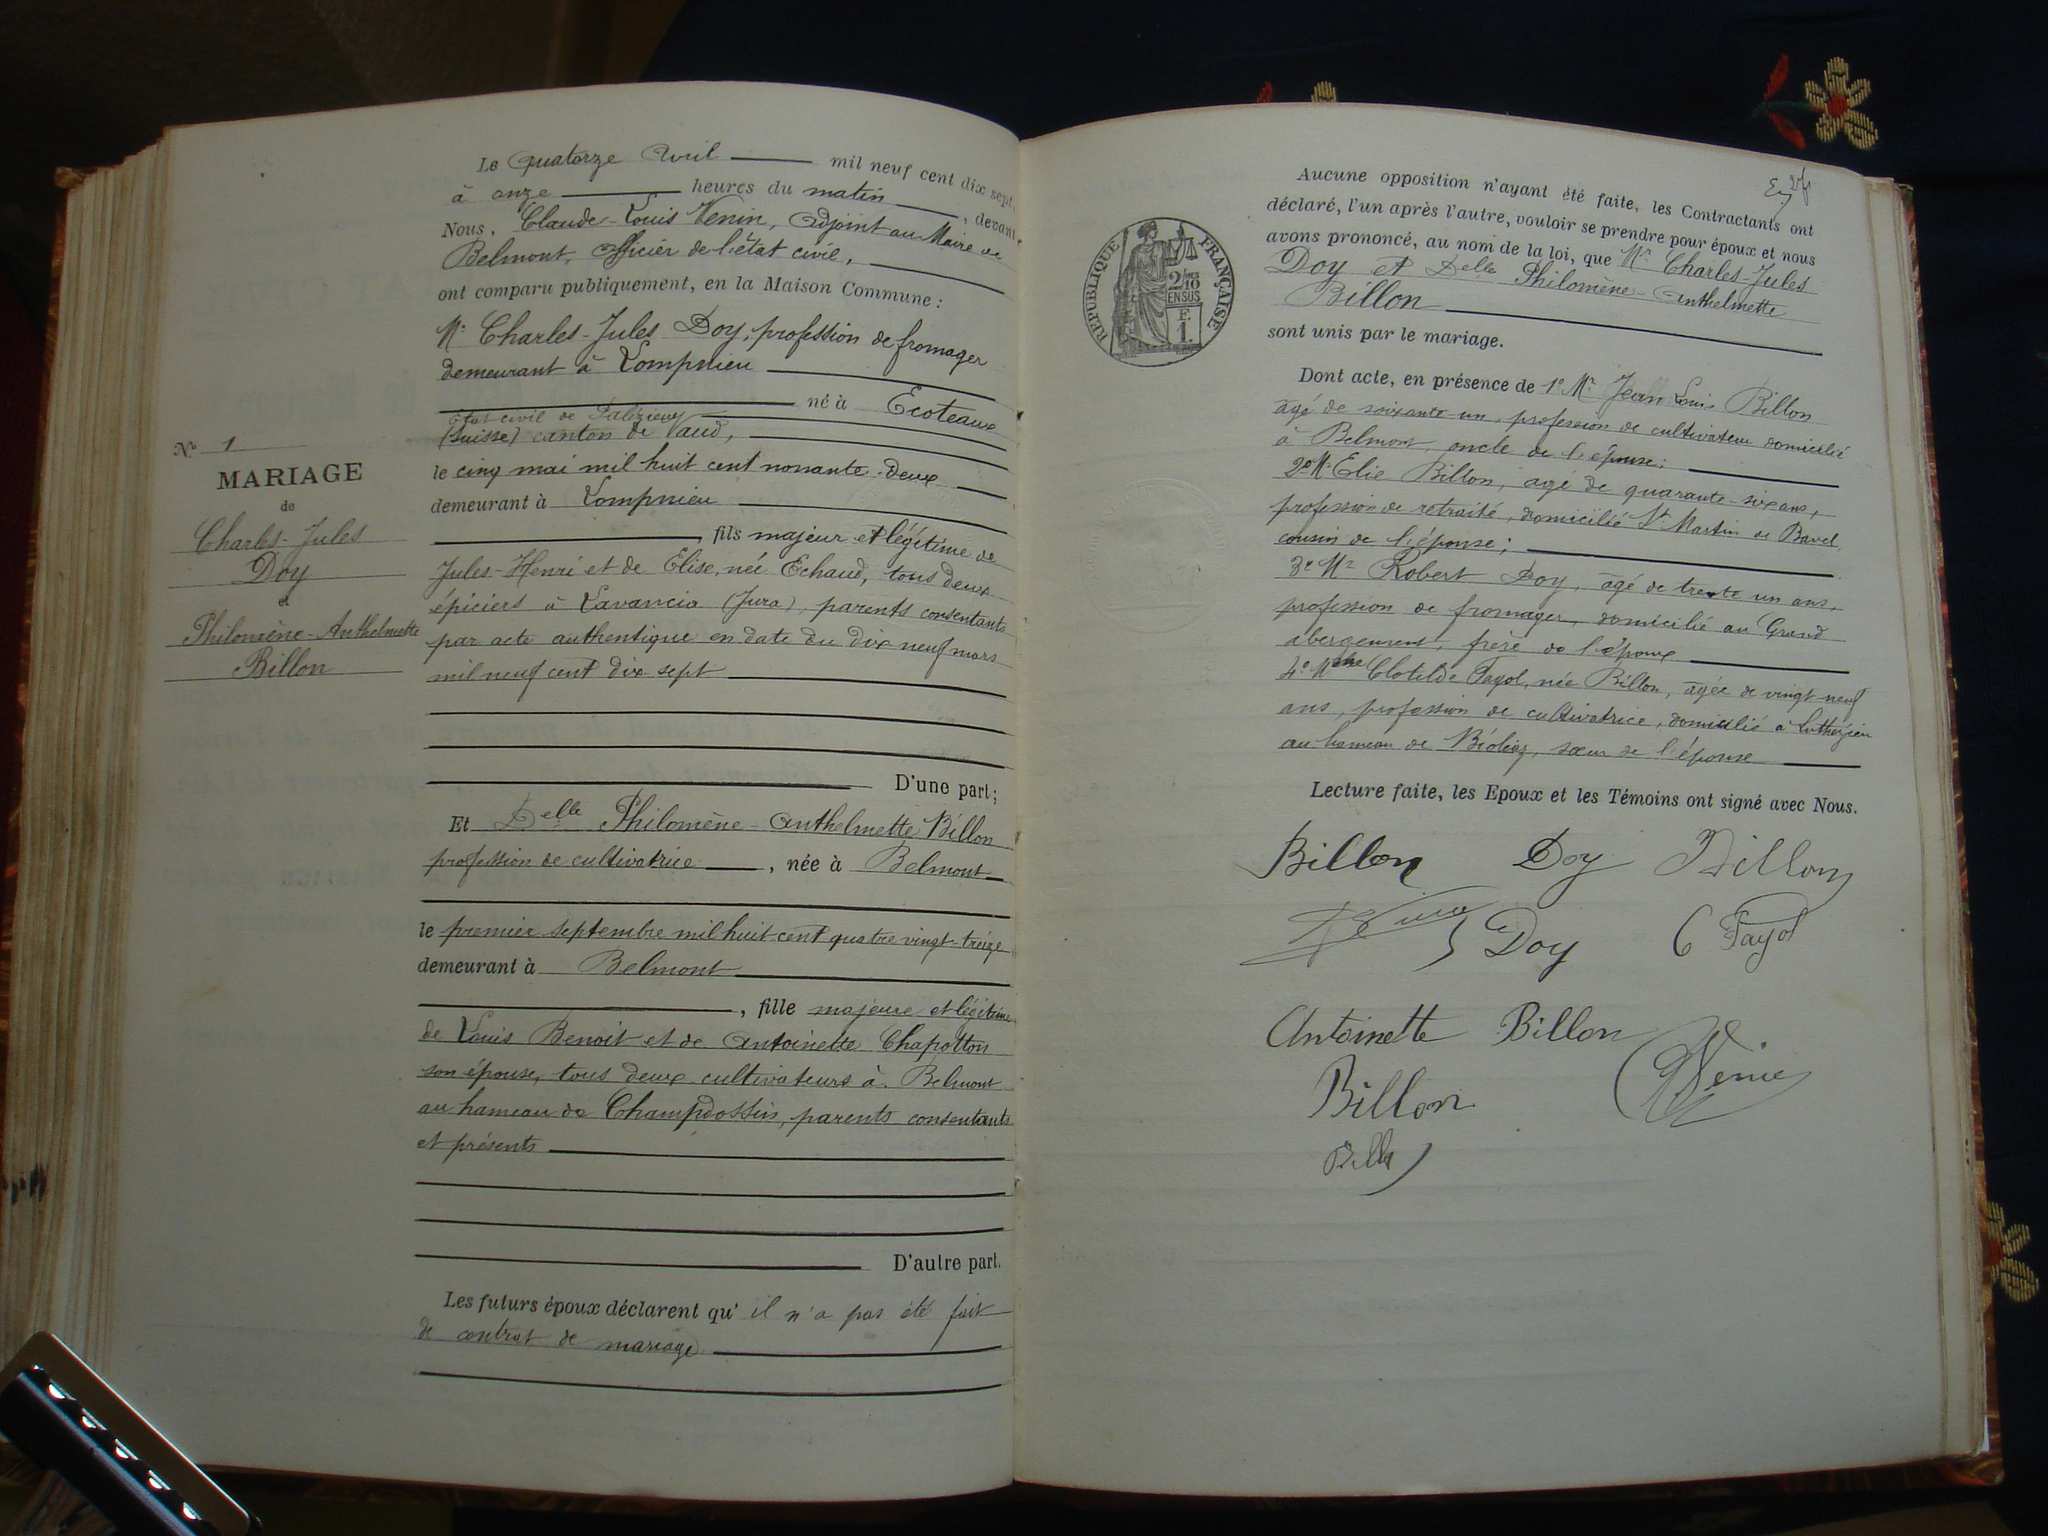 N° 1
MARIAGE
de
Charles-Jules
Doy
et
Philomène-Anthelmette
Billon
Le quatorze avril mil neuf cent dix sept,
à onze heures du matin, devant
Nous, Claude-Louis Venin, adjoint au Maire de
Belmont, officier de l'état civil,
ont comparu publiquement, en la Maison Commune :
Mr Charles-Jules Doy, profession de fromager
demeurant à Lompnieu
né à Ecoteaux
état civil de Palézieux
(Suisse) canton de Vaud,
le cinq mai mil huit cent nonante-deux
demeurant à Lompnieu
, fils majeur et légitime de
Jules-Henri et de Elise, née Echaud, tous deux
épiciers à Lavancia (Jura), parents consentants
par acte authentique en date du dix neuf mars
mil neuf cent dix sept
D'une part ;
Et Delle Philomène-Anthelmette Billon
profession de cultivatrice, née à Belmont
le premier septembre mil huit cent quatre vingt-treize
demeurant à Belmont
, fille majeure et légitime
de Louis Benoit et de Antoinette Chapotton
son épouse, tous deux cultivateurs à Belmont
au hameau de Champdossin, parents consentants
et présents
D'autre part.
Les futurs époux déclarent qu'il n'a pas été fait
de contrat de mariage
RÉPUBLIQUE FRANÇAISE
2/10
EN SUS
F.
1.
Aucune opposition n'ayant été faite, les Contractants ont
déclaré, l'un après l'autre, vouloir se prendre pour époux et nous
avons prononcé, au nom de la loi, que Mr Charles-Jules
Doy et Delle Philomène-Anthelmette
Billon
sont unis par le mariage.
Dont acte, en présence de 1° Mr Jean Louis Billon
âgé de soixante-un, profession de cultivateur domicilié
à Belmont, oncle de l'épouse ;
2° Mr Elie Billon, âgé de quarante-six ans,
profession de retraité, domicilié St Martin de Bavel,
cousin de l'épouse ;
3° Mr Robert Doy, âgé de trente un ans,
profession de fromager, domicilié au Grand
abergement, frère de l'époux
4° Mme Clotilde Fayol, née Billon, âgée de vingt neuf
ans, profession de cultivatrice, domicilié à Luthézieu
au hameau de, sœur de l'épouse
Lecture faite, les Epoux et les Témoins ont signé avec Nous.
Billon Doy Billon
Doy C Fayol
Antoinette Billon
Billon